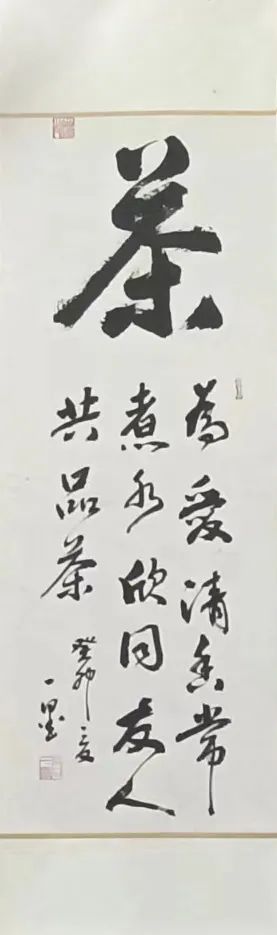 茶
為愛清香常
煮水欣同友人
共品茶
癸卯夏
一墨